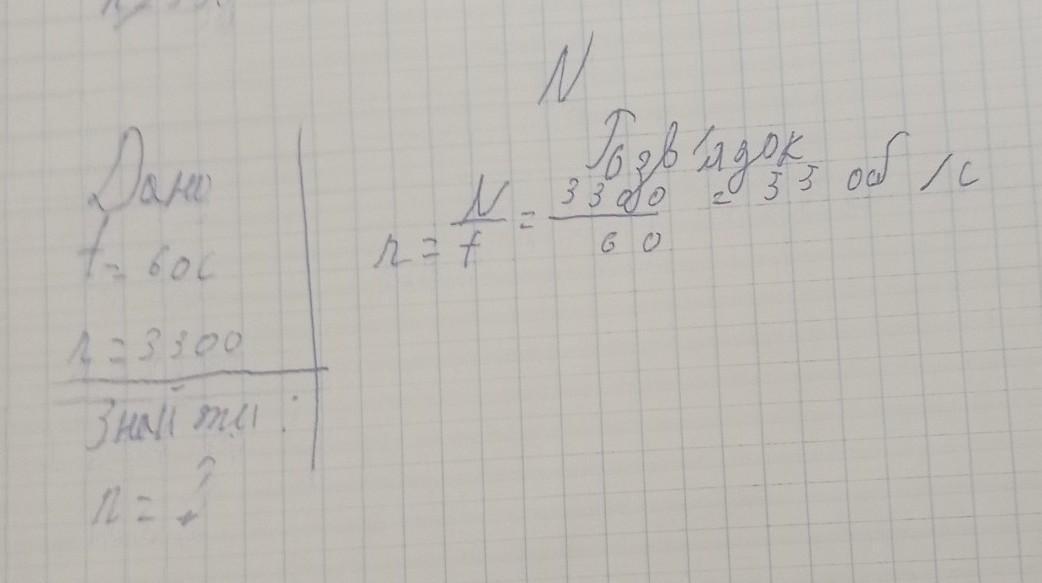 N
Розв'язок
Дано
t = 60с
n = 3300
Знайти :
n = ?
n = N/t = 3300/60 = 55 об/с